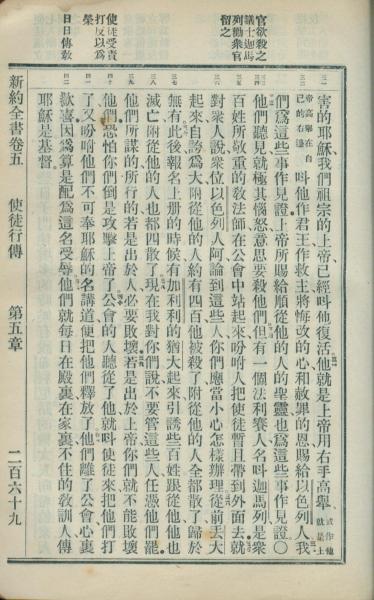 官欲殺之
議士迦馬
列勸衆官
留之
使徒受責
打反以爲
榮
日日傳敎
三一
害的耶穌我們祖宗的上帝已經呌他復活他就是上帝用右手高舉或作他就是上
三二
帝高舉在自己的右邊呌他作君王作救主將悔改的心和赦罪的恩賜給以色列人我
們爲這些事作見證上帝所賜給順從他的人的聖靈也爲這些事作見證〇
三三
三四
他們聽見就極其惱怒意思要殺他們但有一個法利賽人名呌迦馬列是衆
三五
百姓所敬重的敎法師在公會中站起來吩咐人把使徒暫且帶到外面去就
三六
對衆人說衆位以色列人阿論到這些人你們應當小心怎樣辦理從前丟大
起來自誇爲大附從他的人約有四百他被殺了附從他的人全都散了歸於
三七
無有此後報名上册的時候有加利利的猶大起來引誘些百姓跟從他他也
三八
滅亡附從他的人也都四散了現在我對你們說不要管這些人任憑他們罷
三九
他們所謀的所行的若是出於人必要敗壞若是出於上帝你們就不能敗壞
四十
他們恐怕你們倒是攻擊上帝了公會的人聽從了他就呌使徒來把他們打
四一
了又吩咐他們不可奉耶穌的名講道便把他們釋放了他們離了公會心裏
四二
歡喜因爲算是配爲這名受辱他們就每日在殿裏在家裏不住的敎訓人傳
耶穌是基督
新約全書卷五 使徒行傳 第五章 二百六十九